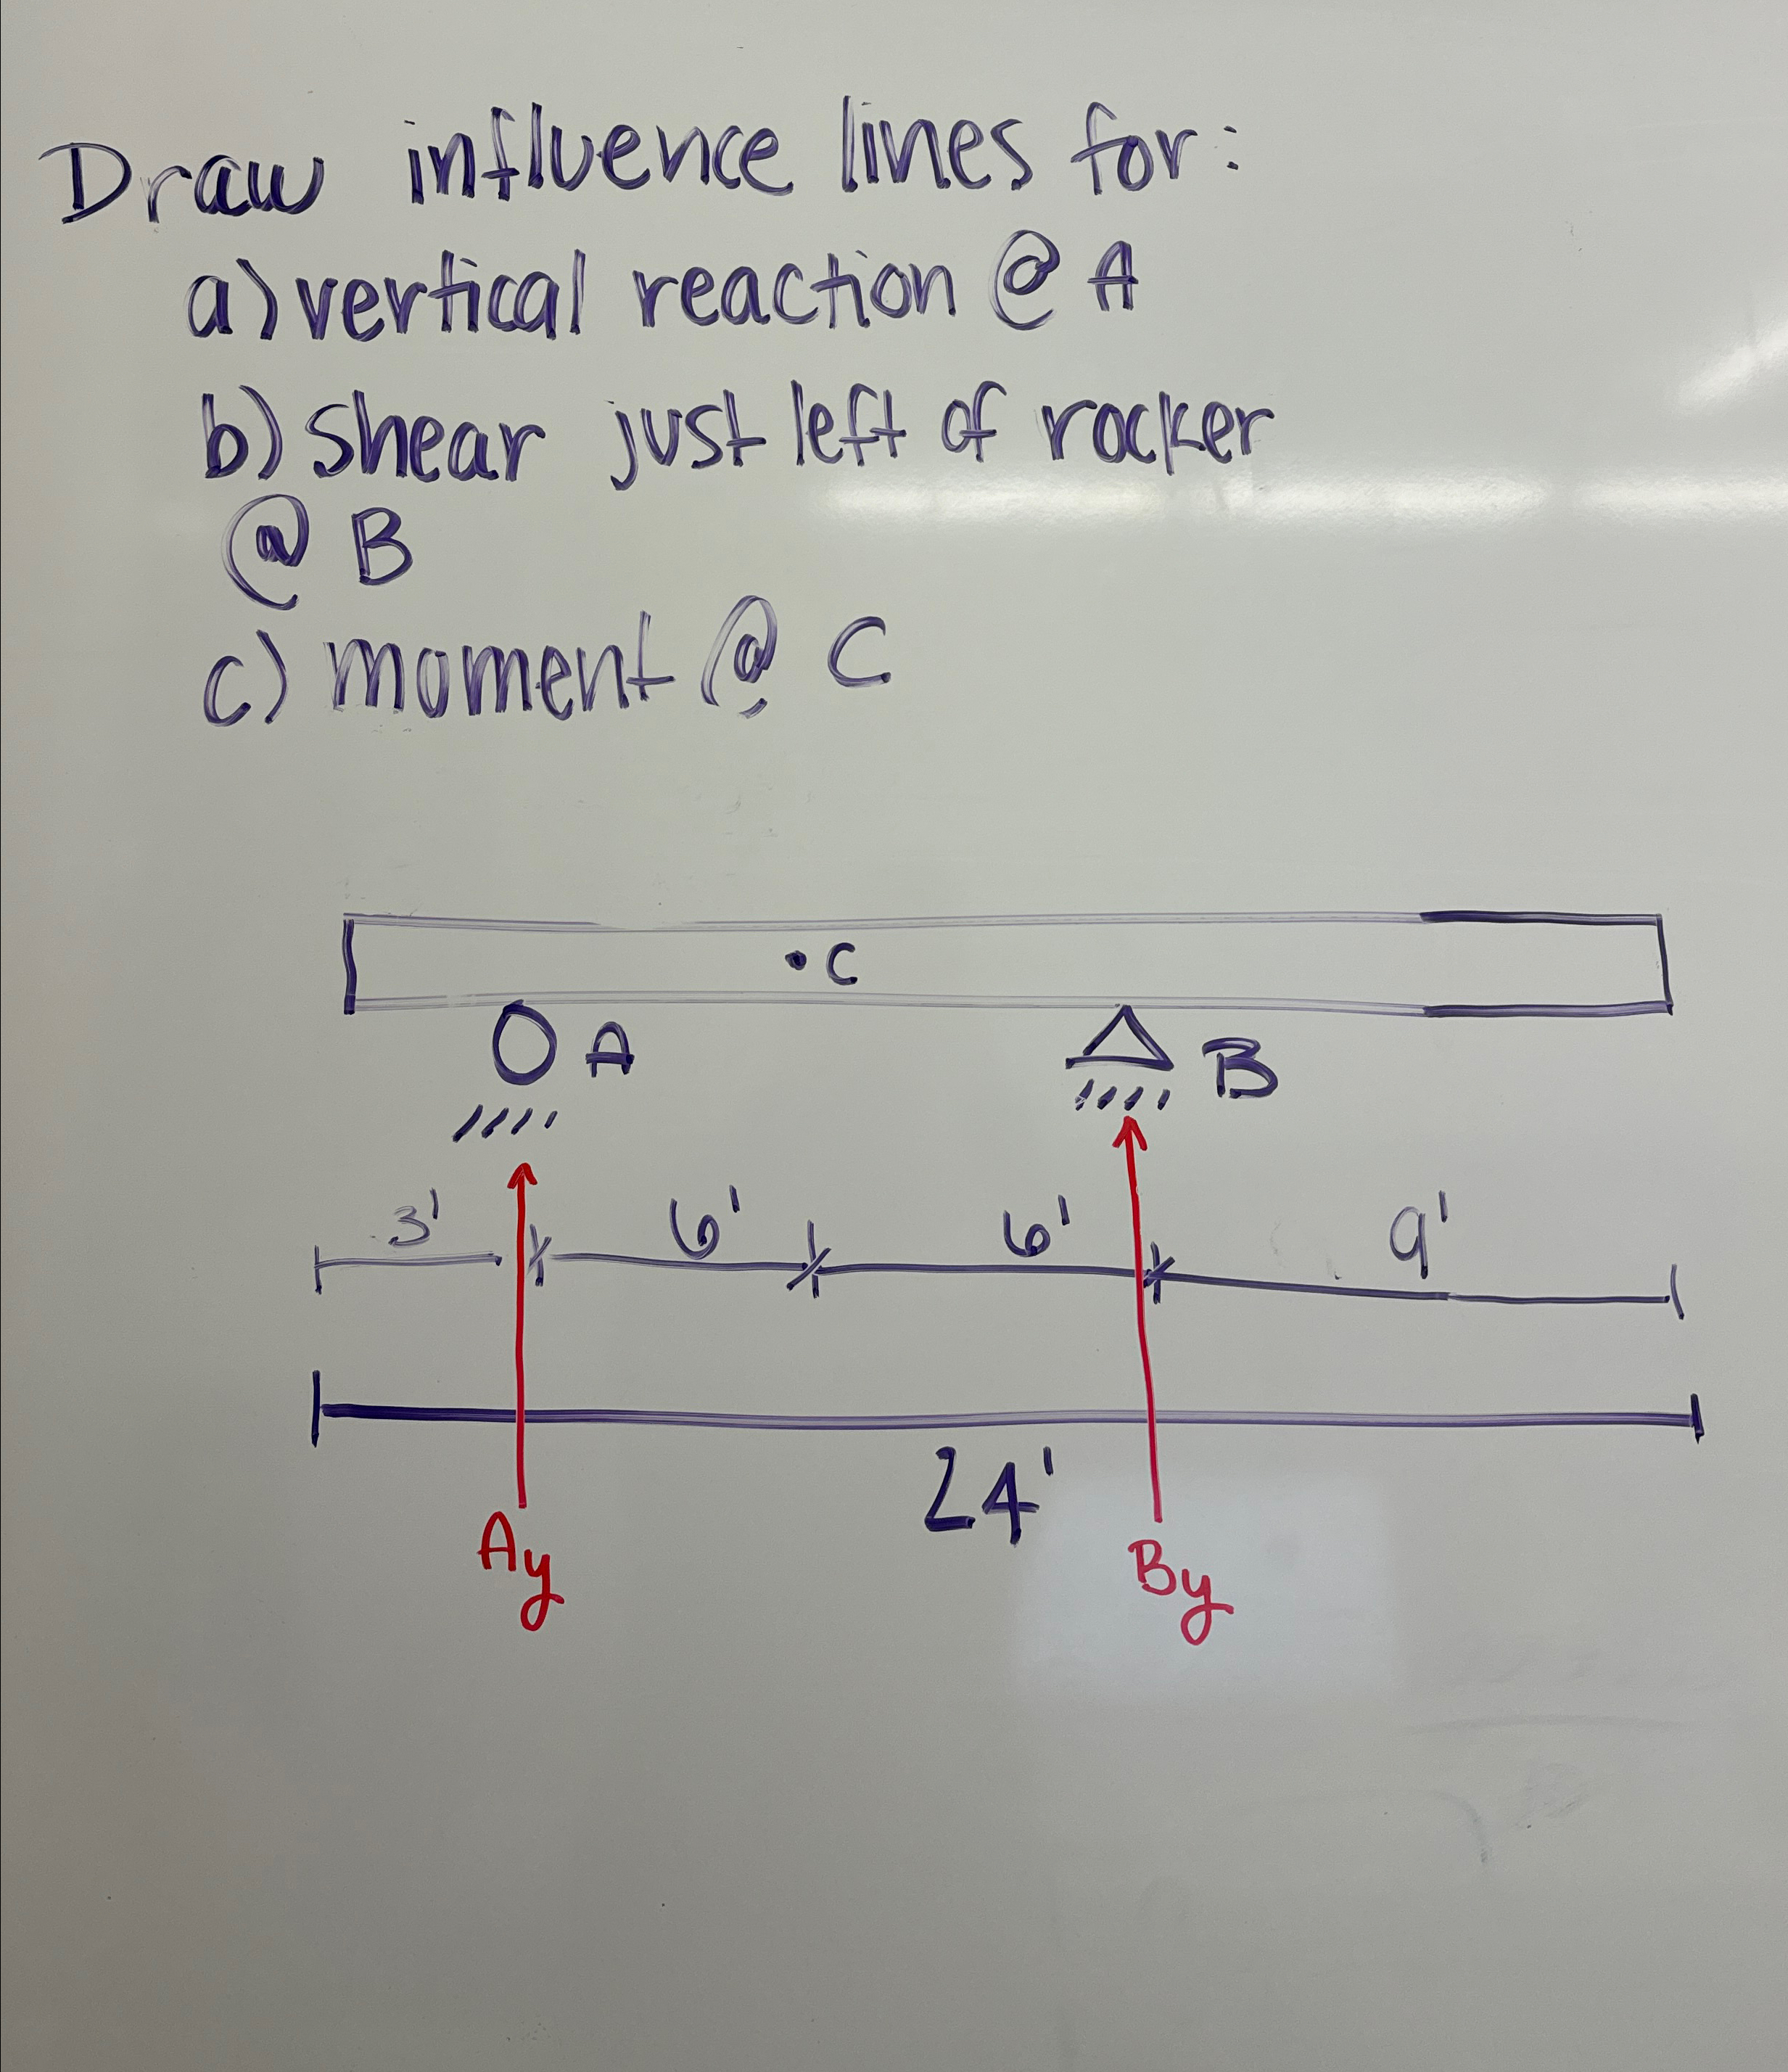 Draw influence lines for:
a) vertical reaction @ A
b) shear just left of rocker
@ B
c) moment @ C
C
A
B
3' 6' 6' 9'
24'
Ay
By